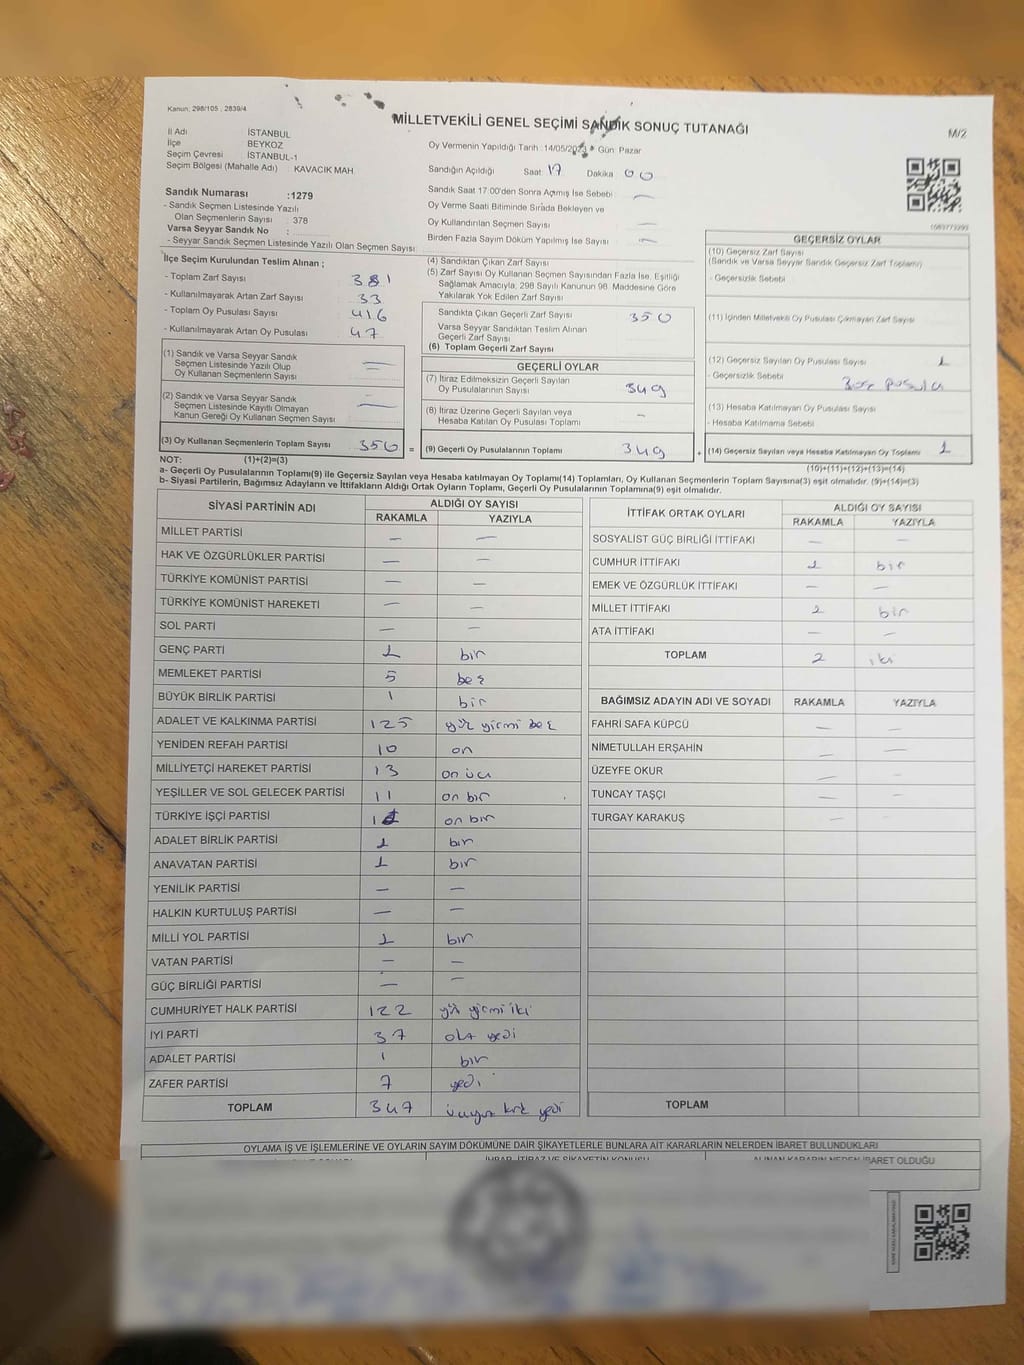 Kanun: 298/105 , 2839/4
MİLLETVEKİLİ GENEL SEÇİMİ SANDIK SONUÇ TUTANAĞI
M/2
İl Adı İSTANBUL
İlçe BEYKOZ
Seçim Çevresi İSTANBUL-1
Seçim Bölgesi (Mahalle Adı) : KAVACIK MAH
Sandık Numarası :1279
- Sandık Seçmen Listesinde Yazılı
Olan Seçmenlerin Sayısı : 378
Varsa Seyyar Sandık No :
- Seyyar Sandık Seçmen Listesinde Yazılı Olan Seçmen Sayısı:
Oy Vermenin Yapıldığı Tarih : 14/05/2023 Gün: Pazar
Sandığın Açıldığı Saat: 17 Dakika 00
Sandık Saat 17:00'den Sonra Açımış İse Sebebi: —
Oy Verme Saati Bitiminde Sırada Bekleyen ve
Oy Kullandırılan Seçmen Sayısı —
Birden Fazla Sayım Döküm Yapılmış İse Sayısı —
İlçe Seçim Kurulundan Teslim Alınan ;
- Toplam Zarf Sayısı 381
- Kullanılmayarak Artan Zarf Sayısı 33
- Toplam Oy Pusulası Sayısı 416
- Kullanılmayarak Artan Oy Pusulası 47
(1) Sandık ve Varsa Seyyar Sandık
Seçmen Listesinde Yazılı Olup
Oy Kullanan Seçmenlerin Sayısı
(2) Sandık ve Varsa Seyyar Sandık
Seçmen Listesinde Kayıtlı Olmayan
Kanun Gereği Oy Kullanan Seçmen Sayısı —
(3) Oy Kullanan Seçmenlerin Toplam Sayısı 350 =
(4) Sandıktan Çıkan Zarf Sayısı
(5) Zarf Sayısı Oy Kullanan Seçmen Sayısından Fazla İse, Eşitliği
Sağlamak Amacıyla, 298 Sayılı Kanunun 98. Maddesine Göre
Yakılarak Yok Edilen Zarf Sayısı
Sandıkta Çıkan Geçerli Zarf Sayısı 350
Varsa Seyyar Sandıktan Teslim Alınan
Geçerli Zarf Sayısı
(6) Toplam Geçerli Zarf Sayısı
GEÇERLİ OYLAR
(7) İtiraz Edilmeksizin Geçerli Sayılan
Oy Pusulalarının Sayısı 349
(8) İtiraz Üzerine Geçerli Sayılan veya
Hesaba Katılan Oy Pusulası Toplamı —
(9) Geçerli Oy Pusulalarının Toplamı 349 +
GEÇERSİZ OYLAR
(10) Geçersiz Zarf Sayısı
(Sandık ve Varsa Seyyar Sandık Geçersiz Zarf Toplamı)
- Geçersizlik Sebebi
(11) İçinden Milletvekili Oy Pusulası Çıkmayan Zarf Sayısı
(12) Geçersiz Sayılan Oy Pusulası Sayısı 1
- Geçersizlik Sebebi Boş pusula
(13) Hesaba Katılmayan Oy Pusulası Sayısı
- Hesaba Katılmama Sebebi
(14) Geçersiz Sayılan veya Hesaba Katılmayan Oy Toplamı 1
NOT: (1)+(2)=(3)
(10)+(11)+(12)+(13)=(14)
a- Geçerli Oy Pusulalarının Toplamı(9) ile Geçersiz Sayılan veya Hesaba katılmayan Oy Toplamı(14) Toplamları, Oy Kullanan Seçmenlerin Toplam Sayısına(3) eşit olmalıdır. (9)+(14)=(3)
b- Siyasi Partilerin, Bağımsız Adayların ve İttifakların Aldığı Ortak Oyların Toplamı, Geçerli Oy Pusulalarının Toplamına(9) eşit olmalıdır.
SİYASİ PARTİNİN ADI ALDIĞI OY SAYISI
RAKAMLA YAZIYLA
MİLLET PARTİSİ — —
HAK VE ÖZGÜRLÜKLER PARTİSİ — —
TÜRKİYE KOMÜNİST PARTİSİ — —
TÜRKİYE KOMÜNİST HAREKETİ — —
SOL PARTİ — —
GENÇ PARTİ 1 bir
MEMLEKET PARTİSİ 5 beş
BÜYÜK BİRLİK PARTİSİ 1 bir
ADALET VE KALKINMA PARTİSİ 125 yüz yirmi beş
YENİDEN REFAH PARTİSİ 10 on
MİLLİYETÇİ HAREKET PARTİSİ 13 on üç
YEŞİLLER VE SOL GELECEK PARTİSİ 11 on bir
TÜRKİYE İŞÇİ PARTİSİ 11 on bir
ADALET BİRLİK PARTİSİ 1 bir
ANAVATAN PARTİSİ 1 bir
YENİLİK PARTİSİ — —
HALKIN KURTULUŞ PARTİSİ — —
MİLLİ YOL PARTİSİ 1 bir
VATAN PARTİSİ — —
GÜÇ BİRLİĞİ PARTİSİ — —
CUMHURİYET HALK PARTİSİ 122 yüz yirmi iki
İYİ PARTİ 37 otuz yedi
ADALET PARTİSİ 1 bir
ZAFER PARTİSİ 7 yedi
TOPLAM 347 üçyüz kırk yedi
İTTİFAK ORTAK OYLARI ALDIĞI OY SAYISI
RAKAMLA YAZIYLA
SOSYALİST GÜÇ BİRLİĞİ İTTİFAKI — —
CUMHUR İTTİFAKI 1 bir
EMEK VE ÖZGÜRLÜK İTTİFAKI — —
MİLLET İTTİFAKI 1 bir
ATA İTTİFAKI — —
TOPLAM 2 iki
BAĞIMSIZ ADAYIN ADI VE SOYADI RAKAMLA YAZIYLA
FAHRİ SAFA KÜPCÜ — —
NİMETULLAH ERŞAHİN — —
ÜZEYFE OKUR — —
TUNCAY TAŞÇI — —
TURGAY KARAKUŞ — —
TOPLAM
OYLAMA İŞ VE İŞLEMLERİNE VE OYLARIN SAYIM DÖKÜMÜNE DAİR ŞİKAYETLERLE BUNLARA AİT KARARLARIN NELERDEN İBARET BULUNDUKLARI
İHBAR, İTİRAZ VE ŞİKAYETİN KONUSU ALINAN KARARIN NEDEN İBARET OLDUĞU